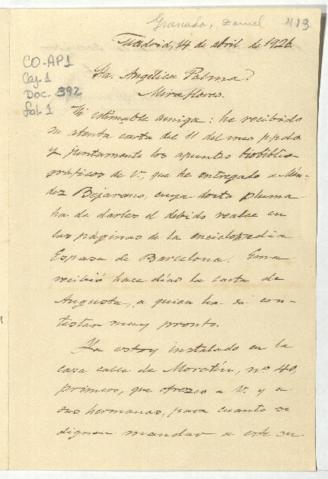 Granada, Daniel
CO-AP1
Caj. 1
Doc. 392
fol. 1
Madrid, 14 de abril de 1926
Sta. Angélica Palma
Miraflores.
Mi estimable amiga: he recibido
su atenta carta del 11 del mes ppdo
y juntamente los apuntes biobiblio
gráficos de V., que he entregado a Mén-
dez Bejarano, cuya docta pluma
ha de darles el debido realce en
las páginas de la enciclopedia
Espasa de Barcelona.
recibió hace días la carta de
Augusta, a quien ha de con-
testar muy pronto.
Ya estoy instalado en la
casa calle de Moratín, no 40,
primero, que ofrezco a V. y a
sus hermanas, para cuanto se
dignen mandar a este su